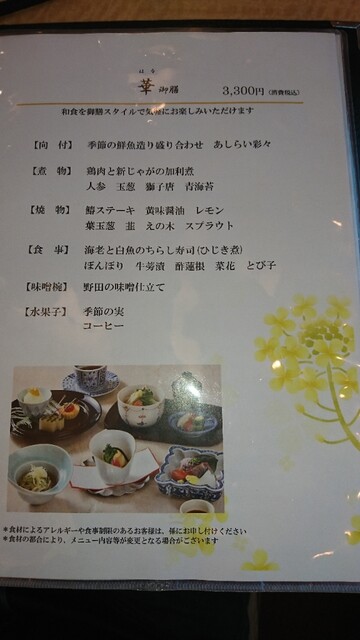 はる
華 御膳 3,300円(消費税込)
和食を御膳スタイルで気軽にお楽しみいただけます
【向 付】 季節の鮮魚造り盛り合わせ あしらい彩々
【煮 物】 鶏肉と新じゃがの加利煮
人参 玉葱 獅子唐 青海苔
【焼 物】 鰆ステーキ 黄味醤油 レモン
葉玉葱 韮 えの木 スプラウト
【食 事】 海老と白魚のちらし寿司(ひじき煮)
ぼんぼり 牛蒡漬 酢蓮根 菜花 とび子
【味噌椀】 野田の味噌仕立て
【水果子】 季節の実
コーヒー
*食材によるアレルギーや食事制限のあるお客様は、係にお申し付けください
*食材の都合により、メニュー内容等が変更となる場合がございます